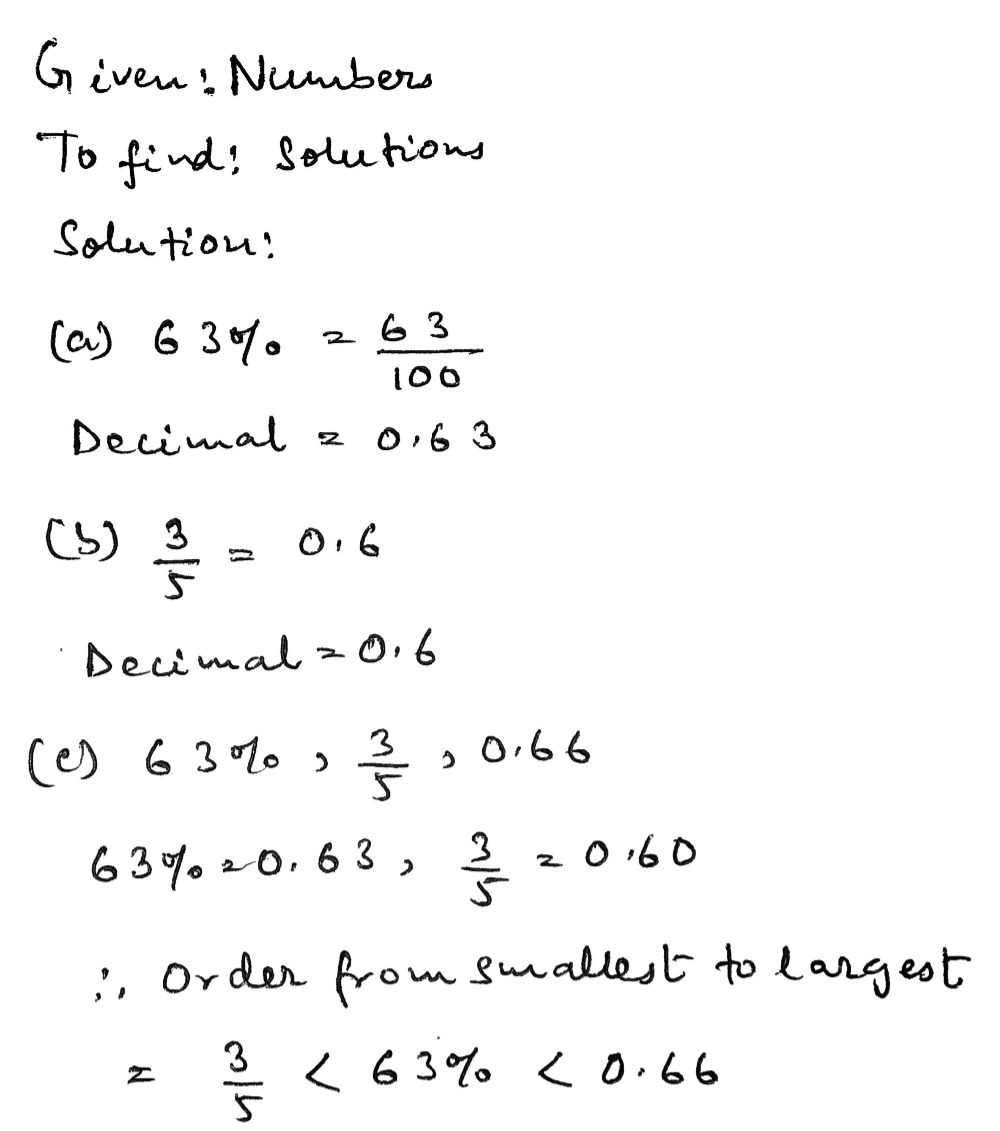 Given: Numbers
To find: Solutions
Solution:
(a) 63% = 63/100
Decimal = 0.63
(b) 3/5 = 0.6
Decimal = 0.6
(c) 63%, 3/5, 0.66
63% = 0.63, 3/5 = 0.60
∴ Order from smallest to largest
= 3/5 < 63% < 0.66